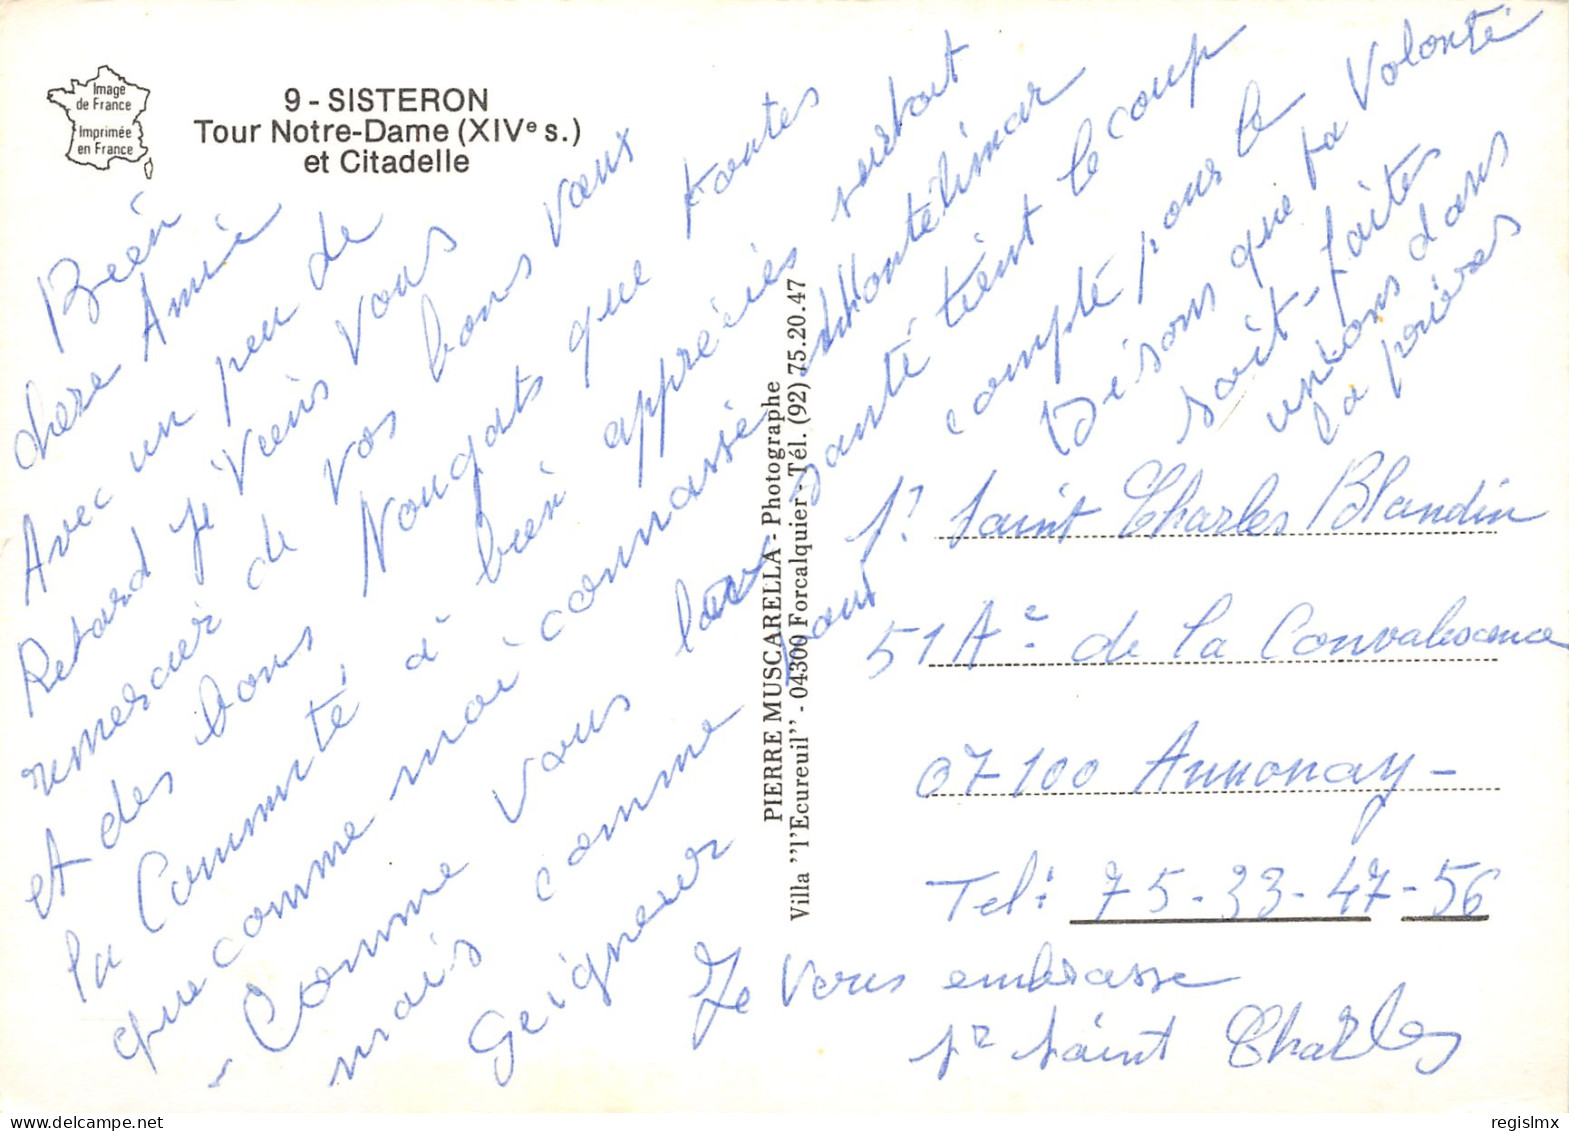 Image
de France
Imprimée
en France
9 - SISTERON
Tour Notre-Dame (XIVe s.)
et Citadelle
Bien
chere Amie
Avec un peu de
Retard je viens vous
remercier de vos bons vœux
et des bons Nougats que toutes
la Communté a bien appréciés surtout
que comme moi connassé Montélimar
- Comme vous la santé tient le coup
mais comme tout compté pour le
Seigneur Disons que sa Volonté
soit - faites
unions dans
la prières
Je vous embrasse
Sr Saint Charles
PIERRE MUSCARELLA - Photographe
Villa "l'Ecureuil" - 04300 Forcalquier - Tél. (92) 75.20.47
Sr Saint Charles Blandin
51 Ae de la Convalescence
07100 Annonay -
Tel: 75-33-47-56
regislmx